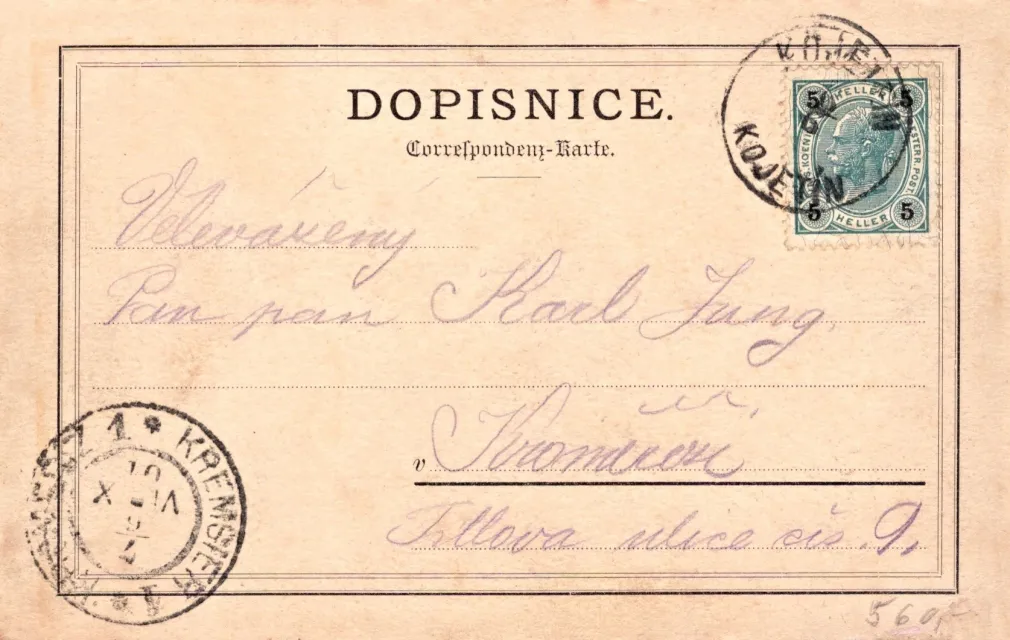 DOPISNICE.
Correſpondenz-Karte.
KOJETEIN
KOJETÍN
5 HELLER 5
5 HELLER 5
Velevážený
Pan pan Karl Jung,
v Kroměříži
Tillova ulice čís. 9,
KREMSIER 1
KROMĚŘÍŽ 1
560,-